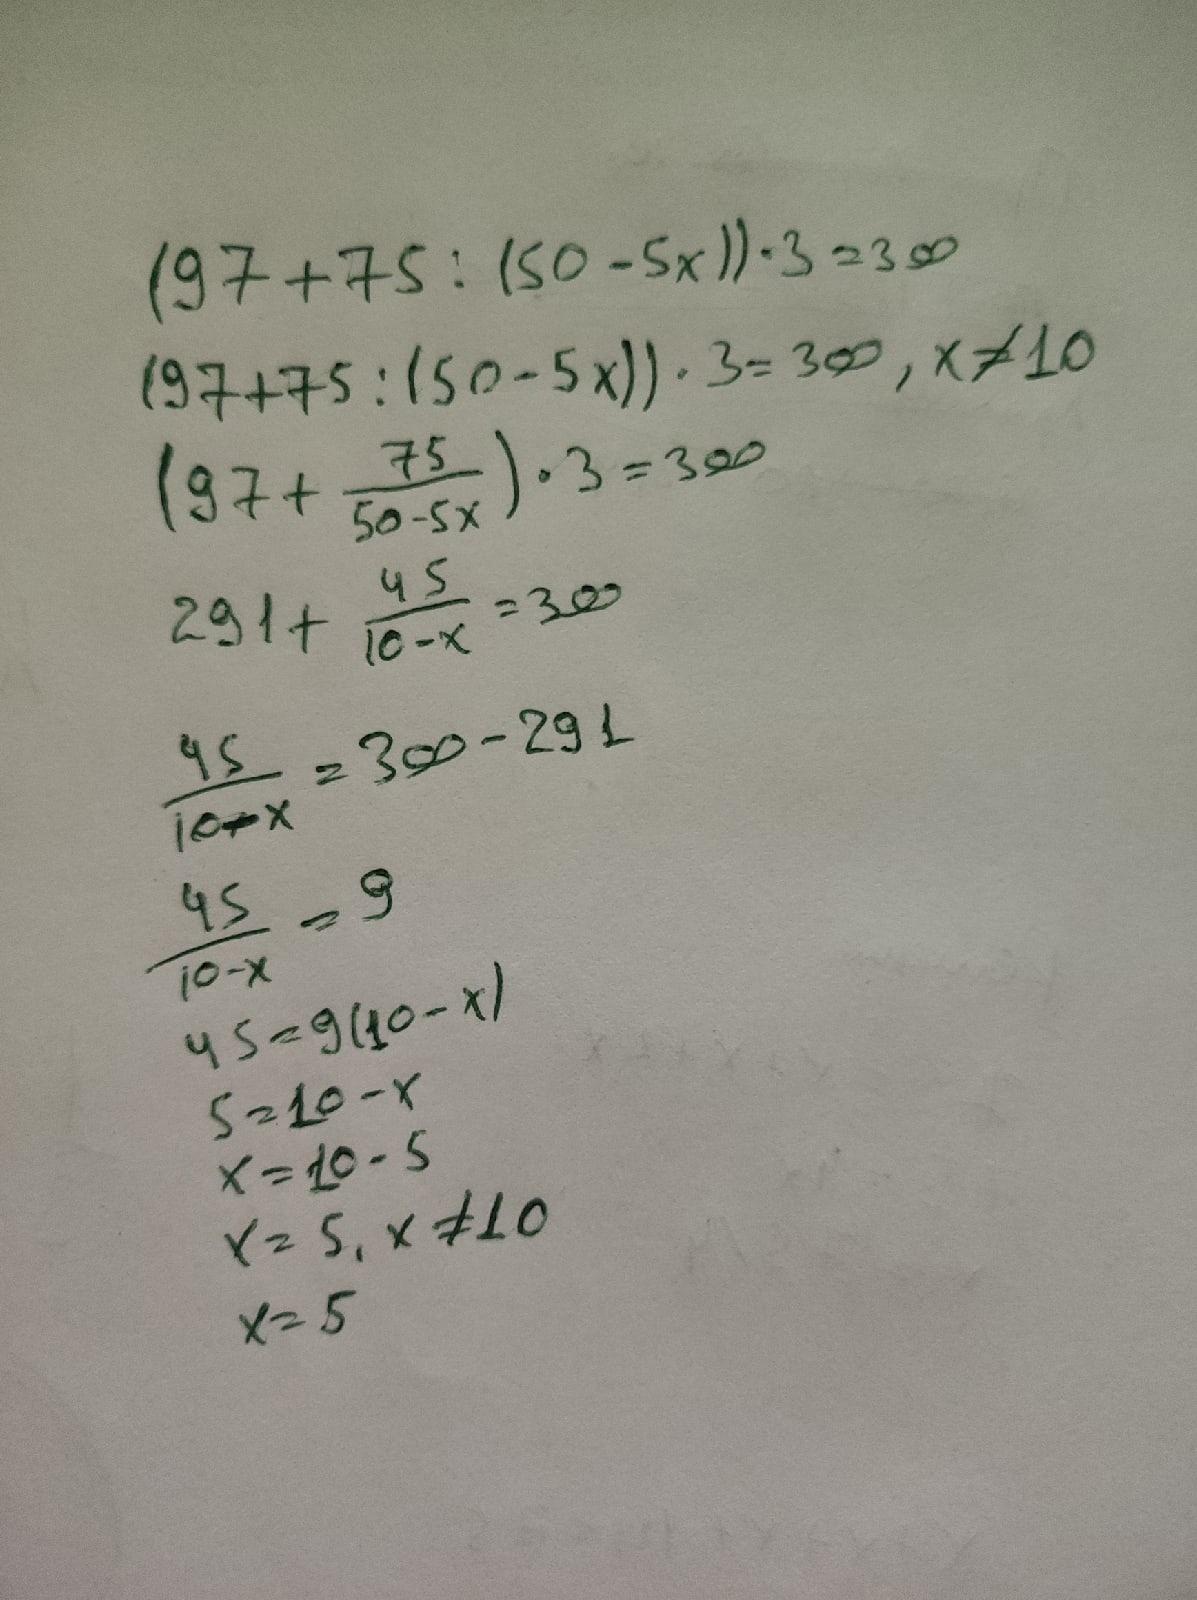 (97+75:(50-5x))·3=300
(97+75:(50-5x))·3=300, x≠10
(97+75/(50-5x))·3=300
291+45/(10-x)=300
45/(10-x)=300-291
45/(10-x)=9
45=9(10-x)
5=10-x
x=10-5
x=5, x≠10
x=5